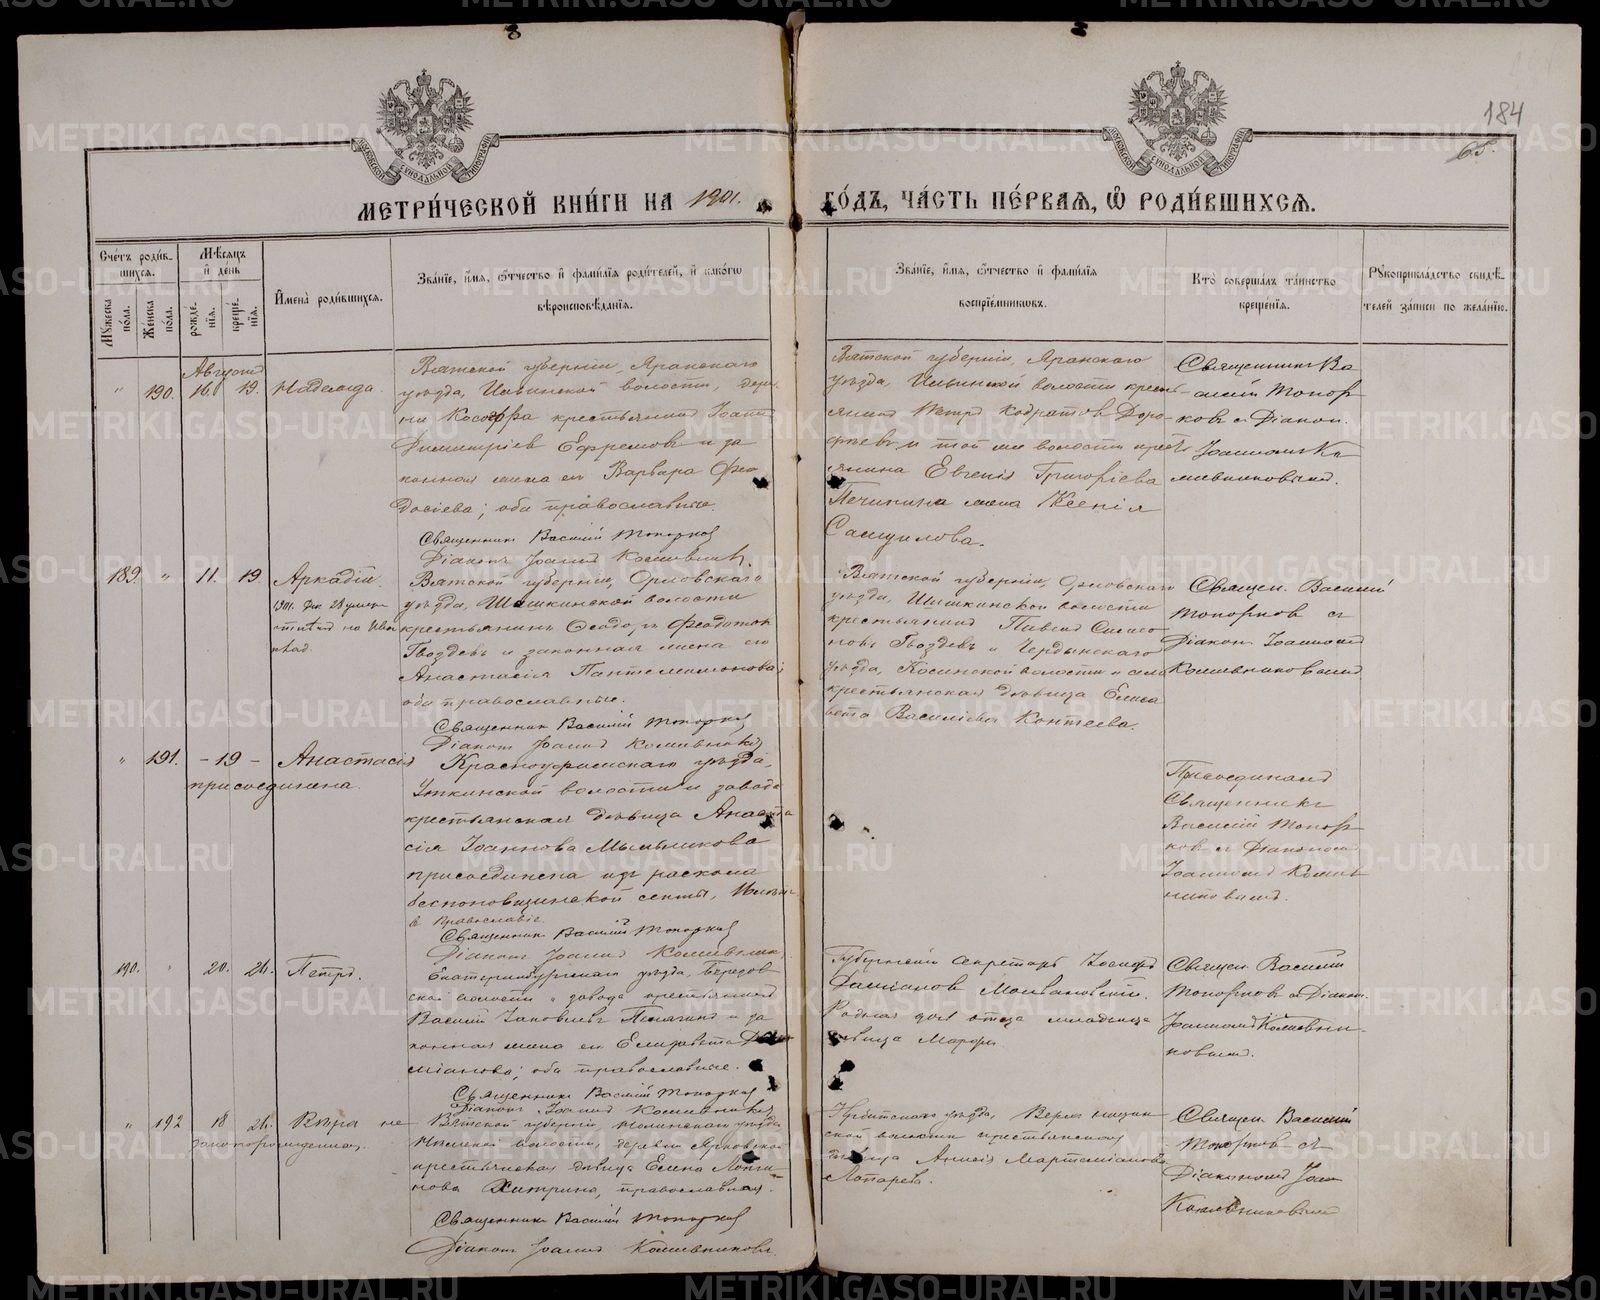 184
65.
МЕТРИ́ЧЕСКОЙ КНИ́ГИ НА 1901.
ГО́ДЪ, ЧА́СТЬ ПЕ́РВАЯ, Ѡ РОДИ́ВШИХСЯ.
Сче́тъ роди́вшихся.
Му́жеска по́ла.
Же́нска по́ла.
Мѣ́сяцъ и де́нь
рожде́нія.
креще́нія.
И́мена роди́вшихся.
Зва́ніе, и́мя, о́тчество и фами́лія роди́телей, и како́го
вѣроисповѣ́данія.
Зва́ніе, и́мя, о́тчество и фами́лія
воспріе́мниковъ.
Кто̀ соверша́лъ та́инство
креще́нія.
Рукоприкла́дство свидѣ́-
телей за́писи по жела́нію.
Августъ
" 190. 16. 19. Надежда.
Вятской губерніи, Яранскаго
уѣзда, Ильинской волости, дерев
ни крестьянинъ Іоаннъ
Димитріевъ Ефремовъ и за
конная жена его Варвара Фео
досіева; оба православные.
Священникъ Василій Топорковъ
Діаконъ Іоаннъ Кожевниковъ.
Вятской губерніи, Яранскаго
уѣзда, Ильинской волости кресть
янинъ Петръ Доро
фѣевъ и той же волости кресть
янина Евгенія Григоріева
Печинина жена Ксенія
Самуилова.
Священникъ Ва
силій Топор
ковъ съ Діакон.
Іоанномъ Ко
жевниковымъ.
189. " 11. 19. Аркадій.
1901. Дек 28 умеръ
Вятской губерніи, Орловскаго
уѣзда, Шишкинской волости
крестьянинъ Ѳеодоръ Феодотов
Гвоздевъ и законная жена его
Анастасія Пантелеимонова;
оба православные.
Священникъ Василій Топорковъ
Діаконъ Іоаннъ Кожевниковъ
Вятской губерніи, Орловскаго
уѣзда, Шишкинской волости
крестьянинъ Павелъ
Гвоздевъ и Чердынскаго
уѣзда, Косинской волости и села
крестьянская дѣвица Елиса
вета Васильева Контеева.
Священ. Василій
Топорковъ съ
Діакон. Іоанномъ
Кожевниковымъ
" 191. - 19 - Анастасія
присоединена.
Красноуфимскаго уѣзда,
Уткинской волости и завода
крестьянская дѣвица Анаста
сія Іоаннова Мыльникова
присоединена изъ раскола
безпоповщинской секты,
въ Православіе.
Священникъ Василій Топорковъ
Діаконъ Іоаннъ Кожевник.
Присоединялъ
Священникъ
Василій Топор
ковъ съ Діакономъ
Іоанномъ Кожев
никовымъ.
190. " 20. 26. Петръ.
Екатеринбургскаго уѣзда, Березов
ской волости и завода крестьянинъ
Василій Іаковлевъ и за
конная жена его Елизавета Да
міанова; оба православные.
Священникъ Василій Топорковъ
Діаконъ Іоаннъ Кожевниковъ
Губернскій Секретарь Іосифъ
Даміановъ
Родная отца младенца
дѣвица Марѳа.
Священ. Василій
Топорковъ съ Діакон.
Іоанномъ Кожевни
ковымъ.
" 192 18 26. Вѣра не
законорожденная.
Вятской губерніи, Нолинскаго уѣзда
волости, деревни
крестьянская дѣвица Елена Лонги
нова Хитрина, православная.
Священникъ Василій Топорковъ
Діаконъ Іоаннъ Кожевниковъ.
Ирбитскаго уѣзда, Верх ницин
ской волости крестьянская
дѣвица Анисія Мартеміанова
Лопарева.
Священ. Василій
Топорковъ съ
Діакономъ Іоан
Кожевниковымъ